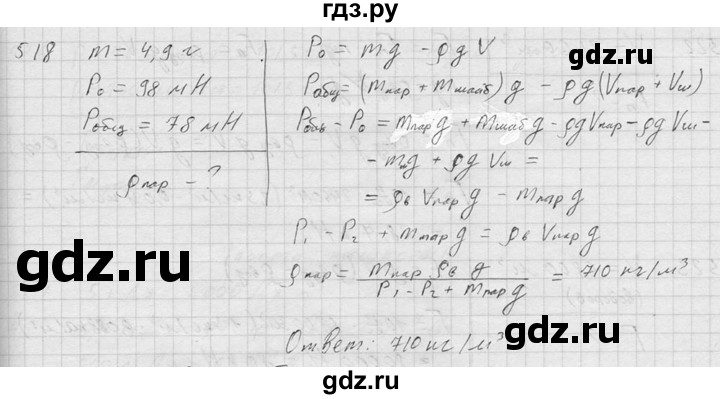 гдз.ру
518 m = 4,9 г
P₀ = 98 мН
Pобщ = 78 мН
ρпар - ?
P₀ = mg - ρgV
Pобщ = (mпар + mшайб)g - ρg(Vпар + Vш)
Pобщ - P₀ = mпарg + mшайбg - ρgVпар - ρgVш -
- mg + ρgVш =
= ρвVпарg - mпарg
P₁ - P₂ + mпарg = ρвVпарg
ρпар = mпар ρв g / (P₁ - P₂ + mпарg) = 710 кг/м³
Ответ: 710 кг/м³
gdz.ru
gdz.ru
gdz.ru
gdz.ru
gdz.ru
gdz.ru